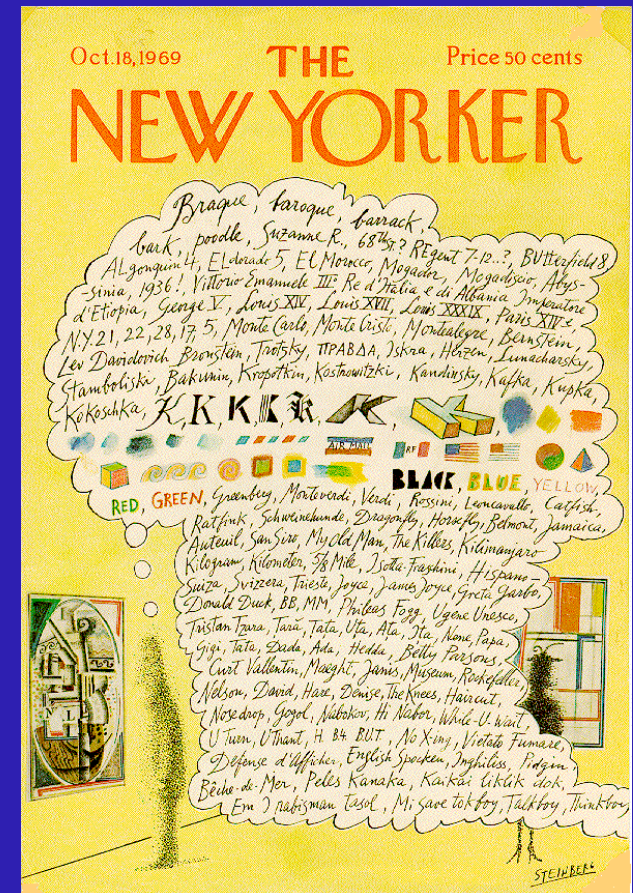 Oct.18,1969 THE Price 50 cents
NEW YORKER
Braque, baroque, barrack,
bark, poodle, Suzanne R., 68th St? REgent 7-12..?, BUtterfield 8,
ALgonquin 4, ELdorado 5, El Morocco, Mogador, Mogadiscio, Abys-
sinia, 1936!, Vittorio Emanuele III: Re d'Italia e di Albania Imperatore
d'Etiopia, George V, Louis XIV, Louis XVII, Louis XXXIX, Paris XIVe
N.Y. 21, 22, 28, 17, 5, Monte Carlo, Monte Cristo, Montealegre, Bernstein,
Lev Davidovich Bronstein, Trotsky, ПРАВДА, Iskra, Herzen, Lunacharsky,
Stamboliski, Bakunin, Kropotkin, Kostrowitzki, Kandinsky, Kafka, Kupka,
Kokoschka, K, K, K, K, K, K, K
AIR MAIL RF
BLACK, BLUE, YELLOW,
RED, GREEN, Greenberg, Monteverdi, Verdi, Rossini, Leoncavallo, Catfish,
Ratfink, Schweinehunde, Dragonfly, Horsefly, Belmont, Jamaica,
Auteuil, San Siro, My Old Man, The Killers, Kilimanjaro
Kilogram, Kilometer, 5/8 Mile, Isotta-Fraschini, Hispano-
Suiza, Svizzera, Trieste, Joyce, James Joyce, Greta Garbo,
Donald Duck, BB, MM, Phileas Fogg, Ugene Unesco,
Tristan Tzara, Tara, Tata, Uta, Ata, Ita, Nene, Papa,
Gigi, Tata, Dada, Ada, Hedda, Betty Parsons,
Curt Valentin, Maeght, Janis, Museum, Rockefeller,
Nelson, David, Hare, Denise, The Knees, Haircut,
Nosedrop, Gogol, Nabokov, Hi Nabor, While-U-Wait
U Turn, U Thant, H B4 BUT, No X-ing, Vietato Fumare,
Défense d'Afficher, English Spoken, Inghiliss, Pidgin
Bêche-de-Mer, Peles Kanaka, Kaikai liklik dok,
Em I nabisman tasol, Mi save tok boy, Talkboy, Thinkboy
STEINBERG